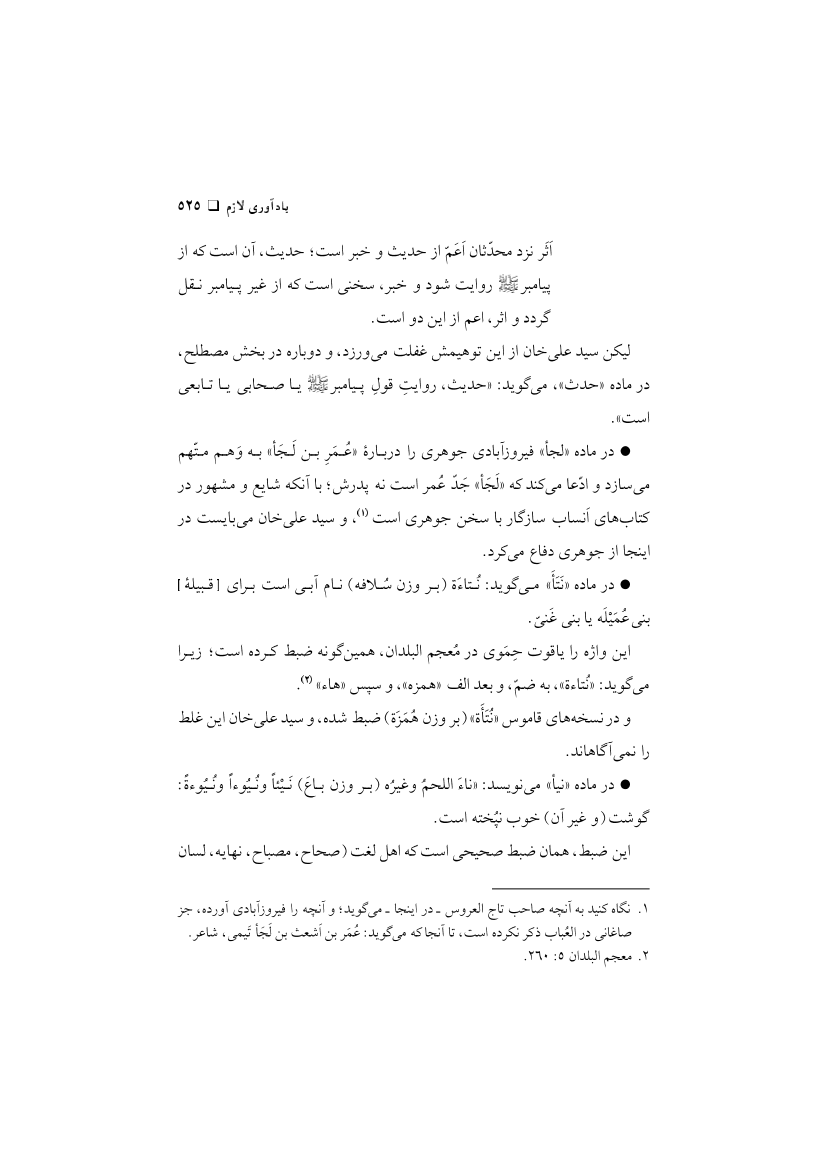 یادآوری لازم ❑ ٥٢٥
اَثَر نزد محدّثان اَعَمّ از حدیث و خبر است؛ حدیث، آن است که از
پیامبرﷺ روایت شود و خبر، سخنی است که از غیر پیامبر نقل
گردد و اثر، اعم از این دو است.
لیکن سید علی‌خان از این توهیمش غفلت می‌ورزد، و دوباره در بخش مصطلح،
در ماده «حدث»، می‌گوید: «حدیث، روایتِ قولِ پیامبرﷺ یا صحابی یا تابعی
است».
● در ماده «لجأ» فیروزآبادی جوهری را دربارهٔ «عُمَرِ بن لَجَأ» به وَهم متّهم
می‌سازد و ادّعا می‌کند که «لَجَأ» جَدّ عُمر است نه پدرش؛ با آنکه شایع و مشهور در
کتاب‌های اَنساب سازگار با سخن جوهری است (١)، و سید علی‌خان می‌بایست در
اینجا از جوهری دفاع می‌کرد.
● در ماده «نَتَأَ» می‌گوید: نُتاءَة (بر وزن سُلافه) نام آبی است برای [قبیلهٔ]
بنی‌عُمَیْلَه یا بنی غَنیّ.
این واژه را یاقوت حِمَوی در مُعجم البلدان، همین‌گونه ضبط کرده است؛ زیرا
می‌گوید: «نُتاءة»، به ضمّ، و بعد الف «همزه»، و سپس «هاء» (٢).
و در نسخه‌های قاموس «نُتَأَة» (بر وزن هُمَزَة) ضبط شده، و سید علی‌خان این غلط
را نمی‌آگاهاند.
● در ماده «نیأ» می‌نویسد: «ناءَ اللحمُ وغیرُه (بر وزن باعَ) نَیْئاً ونُیُوءاً ونُیُوءةً:
گوشت (و غیر آن) خوب نپُخته است.
این ضبط، همان ضبط صحیحی است که اهل لغت (صحاح، مصباح، نهایه، لسان
١. نگاه کنید به آنچه صاحب تاج العروس ـ در اینجا ـ می‌گوید؛ و آنچه را فیروزآبادی آورده، جز
صاغانی در العُباب ذکر نکرده است، تا آنجا که می‌گوید: عُمَر بن اَشعث بن لَجَأ تَیمی، شاعر.
٢. معجم البلدان ٥: ٢٦٠.